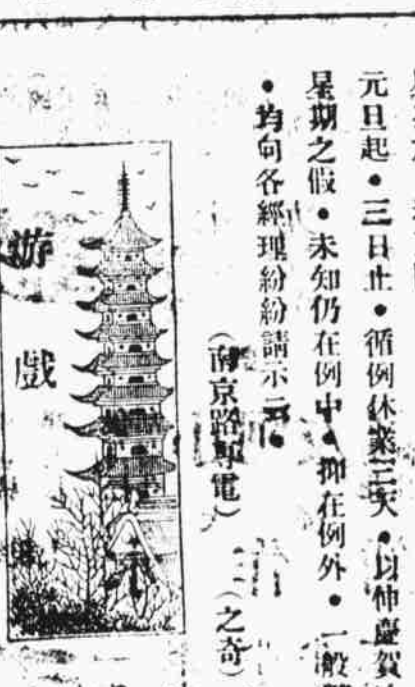 元旦起●三日止●循例休業三天●以伸慶賀
星期之假●未知仍在例中●抑在例外●一般
●均向各經理紛紛請示云●
（南京路專電）（之奇）
游戲